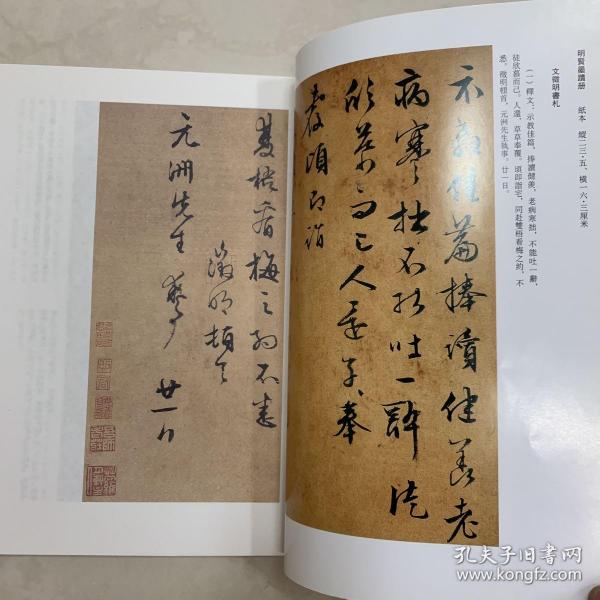 明賢墨蹟册　紙本　縱二三·五、橫一六·三厘米
文徵明書札
（一）釋文：示教佳篇，捧讀健羨，老病寒拙，不能吐一辭，
徒欣慕而已。人還，草草奉覆。頃即詣宅，同赴雙梧看梅之約，不
悉。徵明頓首，元洲先生執事。廿一日。
示教佳篇捧讀健羨老
病寒拙不能吐一辭徒
欣慕而已人還草草奉
覆頃即詣
雙梧看梅之約不悉
徵明頓首
元洲先生執事　廿一日
孔夫子旧书网
www.kongfz.com